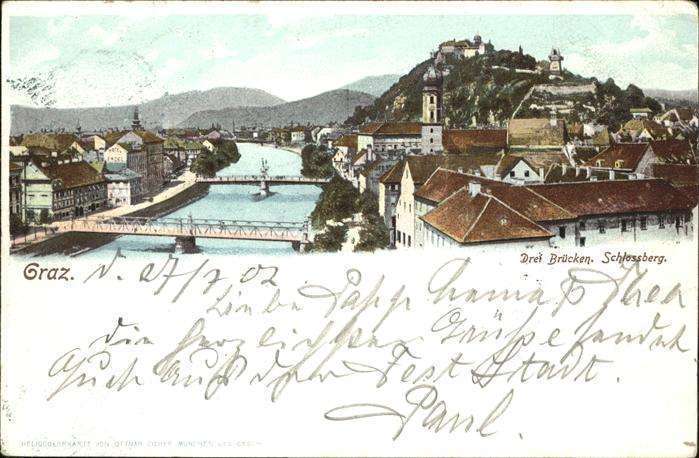 Graz.
Drei Brücken. Schlossberg.
d. 27/7 02
Liebe Papa Mama & Thea
die herzlichsten Grüße sendet
Euch aus der Feststadt.
Paul.
HELIOCOLORKARTE VON OTTMAR ZIEHER, MÜNCHEN